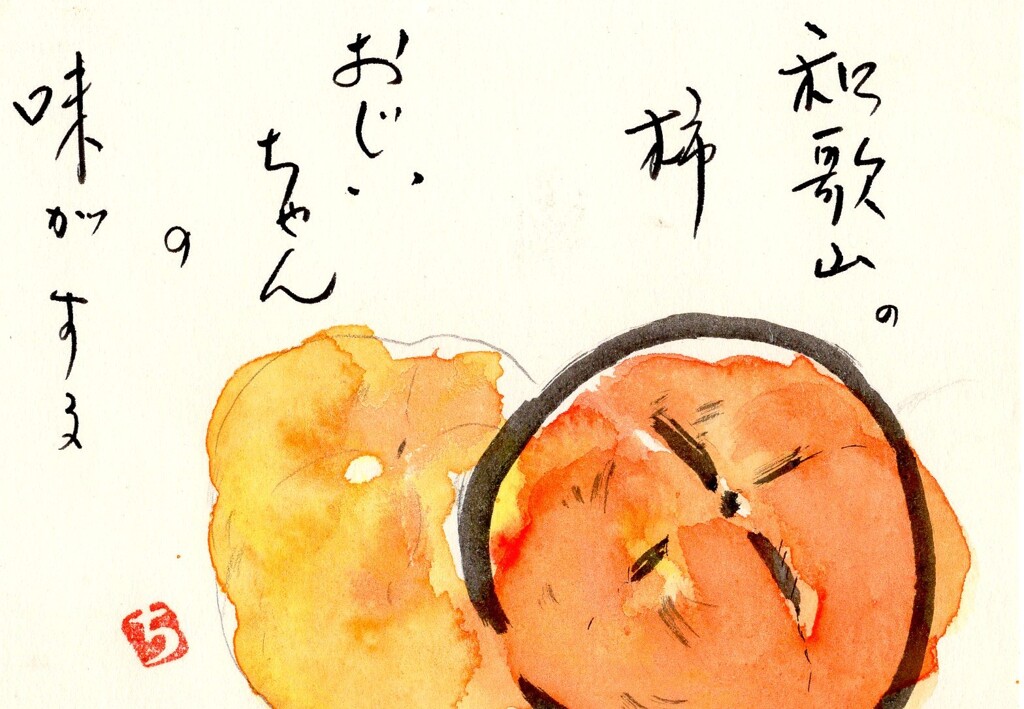 和歌山の
柿
おじい
ちゃん
の
味がする
ち